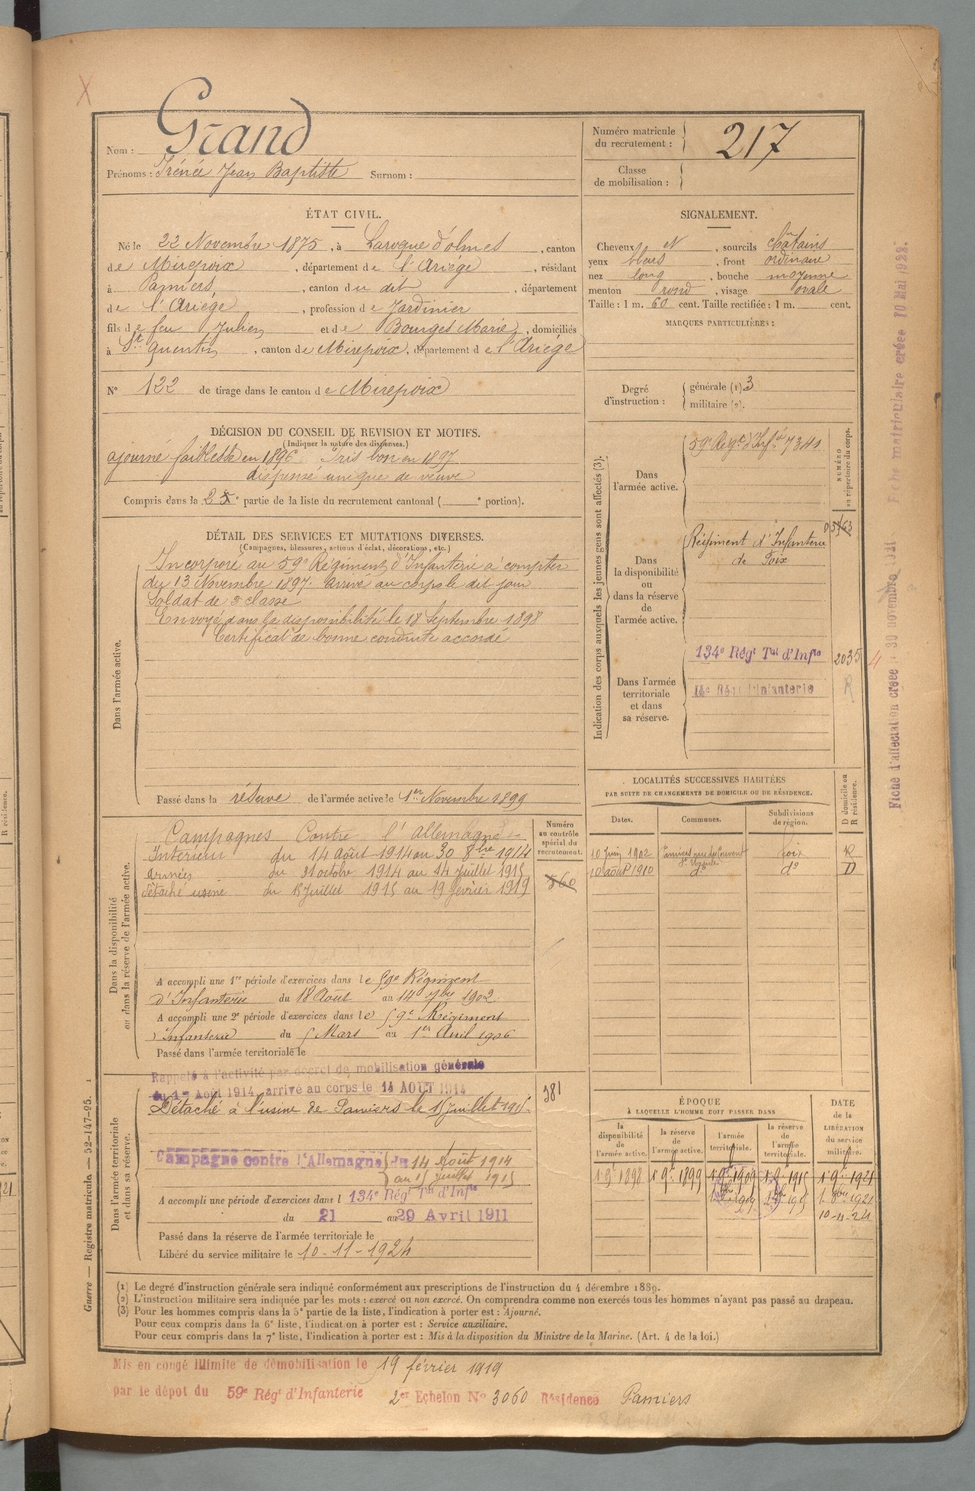 Nom : Grand
Prénoms : Irénée Jean Baptiste Surnom :
Numéro matricule du recrutement : 217
Classe de mobilisation :
ÉTAT CIVIL.
Né le 22 Novembre 1875, à Laroque d'olmes, canton
de Mirepoix, département de l'Ariége, résidant
à Pamiers, canton du dit, département
de l'Ariége, profession de Jardinier
fils de feu Julien et de Bourges Marie, domiciliés
à St Quentin, canton de Mirepoix, département de l'Ariége
N° 122 de tirage dans le canton de Mirepoix
SIGNALEMENT.
Cheveux N, sourcils châtains
yeux bleus, front ordinaire
nez long, bouche moyenne
menton rond, visage ovale
Taille : 1 m. 60 cent. Taille rectifiée : 1 m. cent.
MARQUES PARTICULIÈRES :
Degré d'instruction : générale (1) 3
militaire (2).
DÉCISION DU CONSEIL DE REVISION ET MOTIFS.
(Indiquer la nature des dispenses.)
ajourné faiblesse en 1896 Pris bon en 1897
dispensé unique de veuve
Compris dans la 2e partie de la liste du recrutement cantonal ( e portion).
DÉTAIL DES SERVICES ET MUTATIONS DIVERSES.
(Campagnes, blessures, actions d'éclat, décorations, etc.)
Dans l'armée active.
Incorporé au 59e Régiment d'Infanterie à compter
du 13 Novembre 1897. Arrivé au corps le dit jour
Soldat de 2e classe
Envoyé dans la disponibilité le 18 Septembre 1898
Certificat de bonne conduite accordé
Passé dans la réserve de l'armée active le 1er Novembre 1899
Indication des corps auxquels les jeunes gens sont affectés (3).
NUMÉRO au répertoire du corps.
Dans l'armée active.
59e Régt d'Infie 7341
Dans la disponibilité ou dans la réserve de l'armée active.
Régiment d'Infanterie
de Foix
Dans l'armée territoriale et dans sa réserve.
134e Régt Tal d'Infie
2035
R
Dans la disponibilité ou dans la réserve de l'armée active.
Numéro au contrôle spécial du recrutement.
560
Campagnes Contre l'Allemagne
Intérieur du 14 Août 1914 au 30 8bre 1914
Armées du 31 octobre 1914 au 14 Juillet 1915
Détaché usine du 15 Juillet 1915 au 19 février 1919
A accompli une 1re période d'exercices dans le 59e Régiment
d'Infanterie du 18 Août au 14 7bre 1902
A accompli une 2e période d'exercices dans le 59e Régiment
d'Infanterie du 5 Mars au 1er Avril 1906
Passé dans l'armée territoriale le
LOCALITÉS SUCCESSIVES HABITÉES
PAR SUITE DE CHANGEMENTS DE DOMICILE OU DE RÉSIDENCE.
Dates. Communes. Subdivisions de région. D domicile ou R résidence.
10 Juin 1902 Foix R
10 août 1910 do D
Dans l'armée territoriale et dans sa réserve.
Rappelé à l'activité par décret de mobilisation générale
du 1er Août 1914, arrivé au corps le 14 AOUT 1914
Détaché à l'usine de Pamiers le 15 Juillet 1915
381
Campagne contre l'Allemagne du 14 Août 1914
au 15 Juillet 1915
A accompli une période d'exercices dans l 134e Régt Tal d'Infie
du 21 au 29 Avril 1911
Passé dans la réserve de l'armée territoriale le
Libéré du service militaire le 10-11-1924
ÉPOQUE
À LAQUELLE L'HOMME DOIT PASSER DANS
la disponibilité de l'armée active.
la réserve de l'armée active.
l'armée territoriale.
la réserve de l'armée territoriale.
DATE de la LIBÉRATION du service militaire.
1 9bre 1898 1 9bre 1899 1 9bre 1909 1 9bre 1915 1 9bre 1921
10-11-24
(1) Le degré d'instruction générale sera indiqué conformément aux prescriptions de l'instruction du 4 décembre 1889.
(2) L'instruction militaire sera indiquée par les mots : exercé ou non exercé. On comprendra comme non exercés tous les hommes n'ayant pas passé au drapeau.
(3) Pour les hommes compris dans la 5e partie de la liste, l'indication à porter est : Ajourné.
Pour ceux compris dans la 6e liste, l'indication à porter est : Service auxiliaire.
Pour ceux compris dans la 7e liste, l'indication à porter est : Mis à la disposition du Ministre de la Marine. (Art. 4 de la loi.)
Mis en congé illimité de démobilisation le 19 février 1919
par le dépôt du 59e Régt d'Infanterie 2er Echelon No 3060 Résidence Pamiers
Guerre — Registre matricule. — 52-147-95.
Fiche d'affectation créée : 30 novembre 1921
Fiche matriculaire créée 10 Mai 1922.